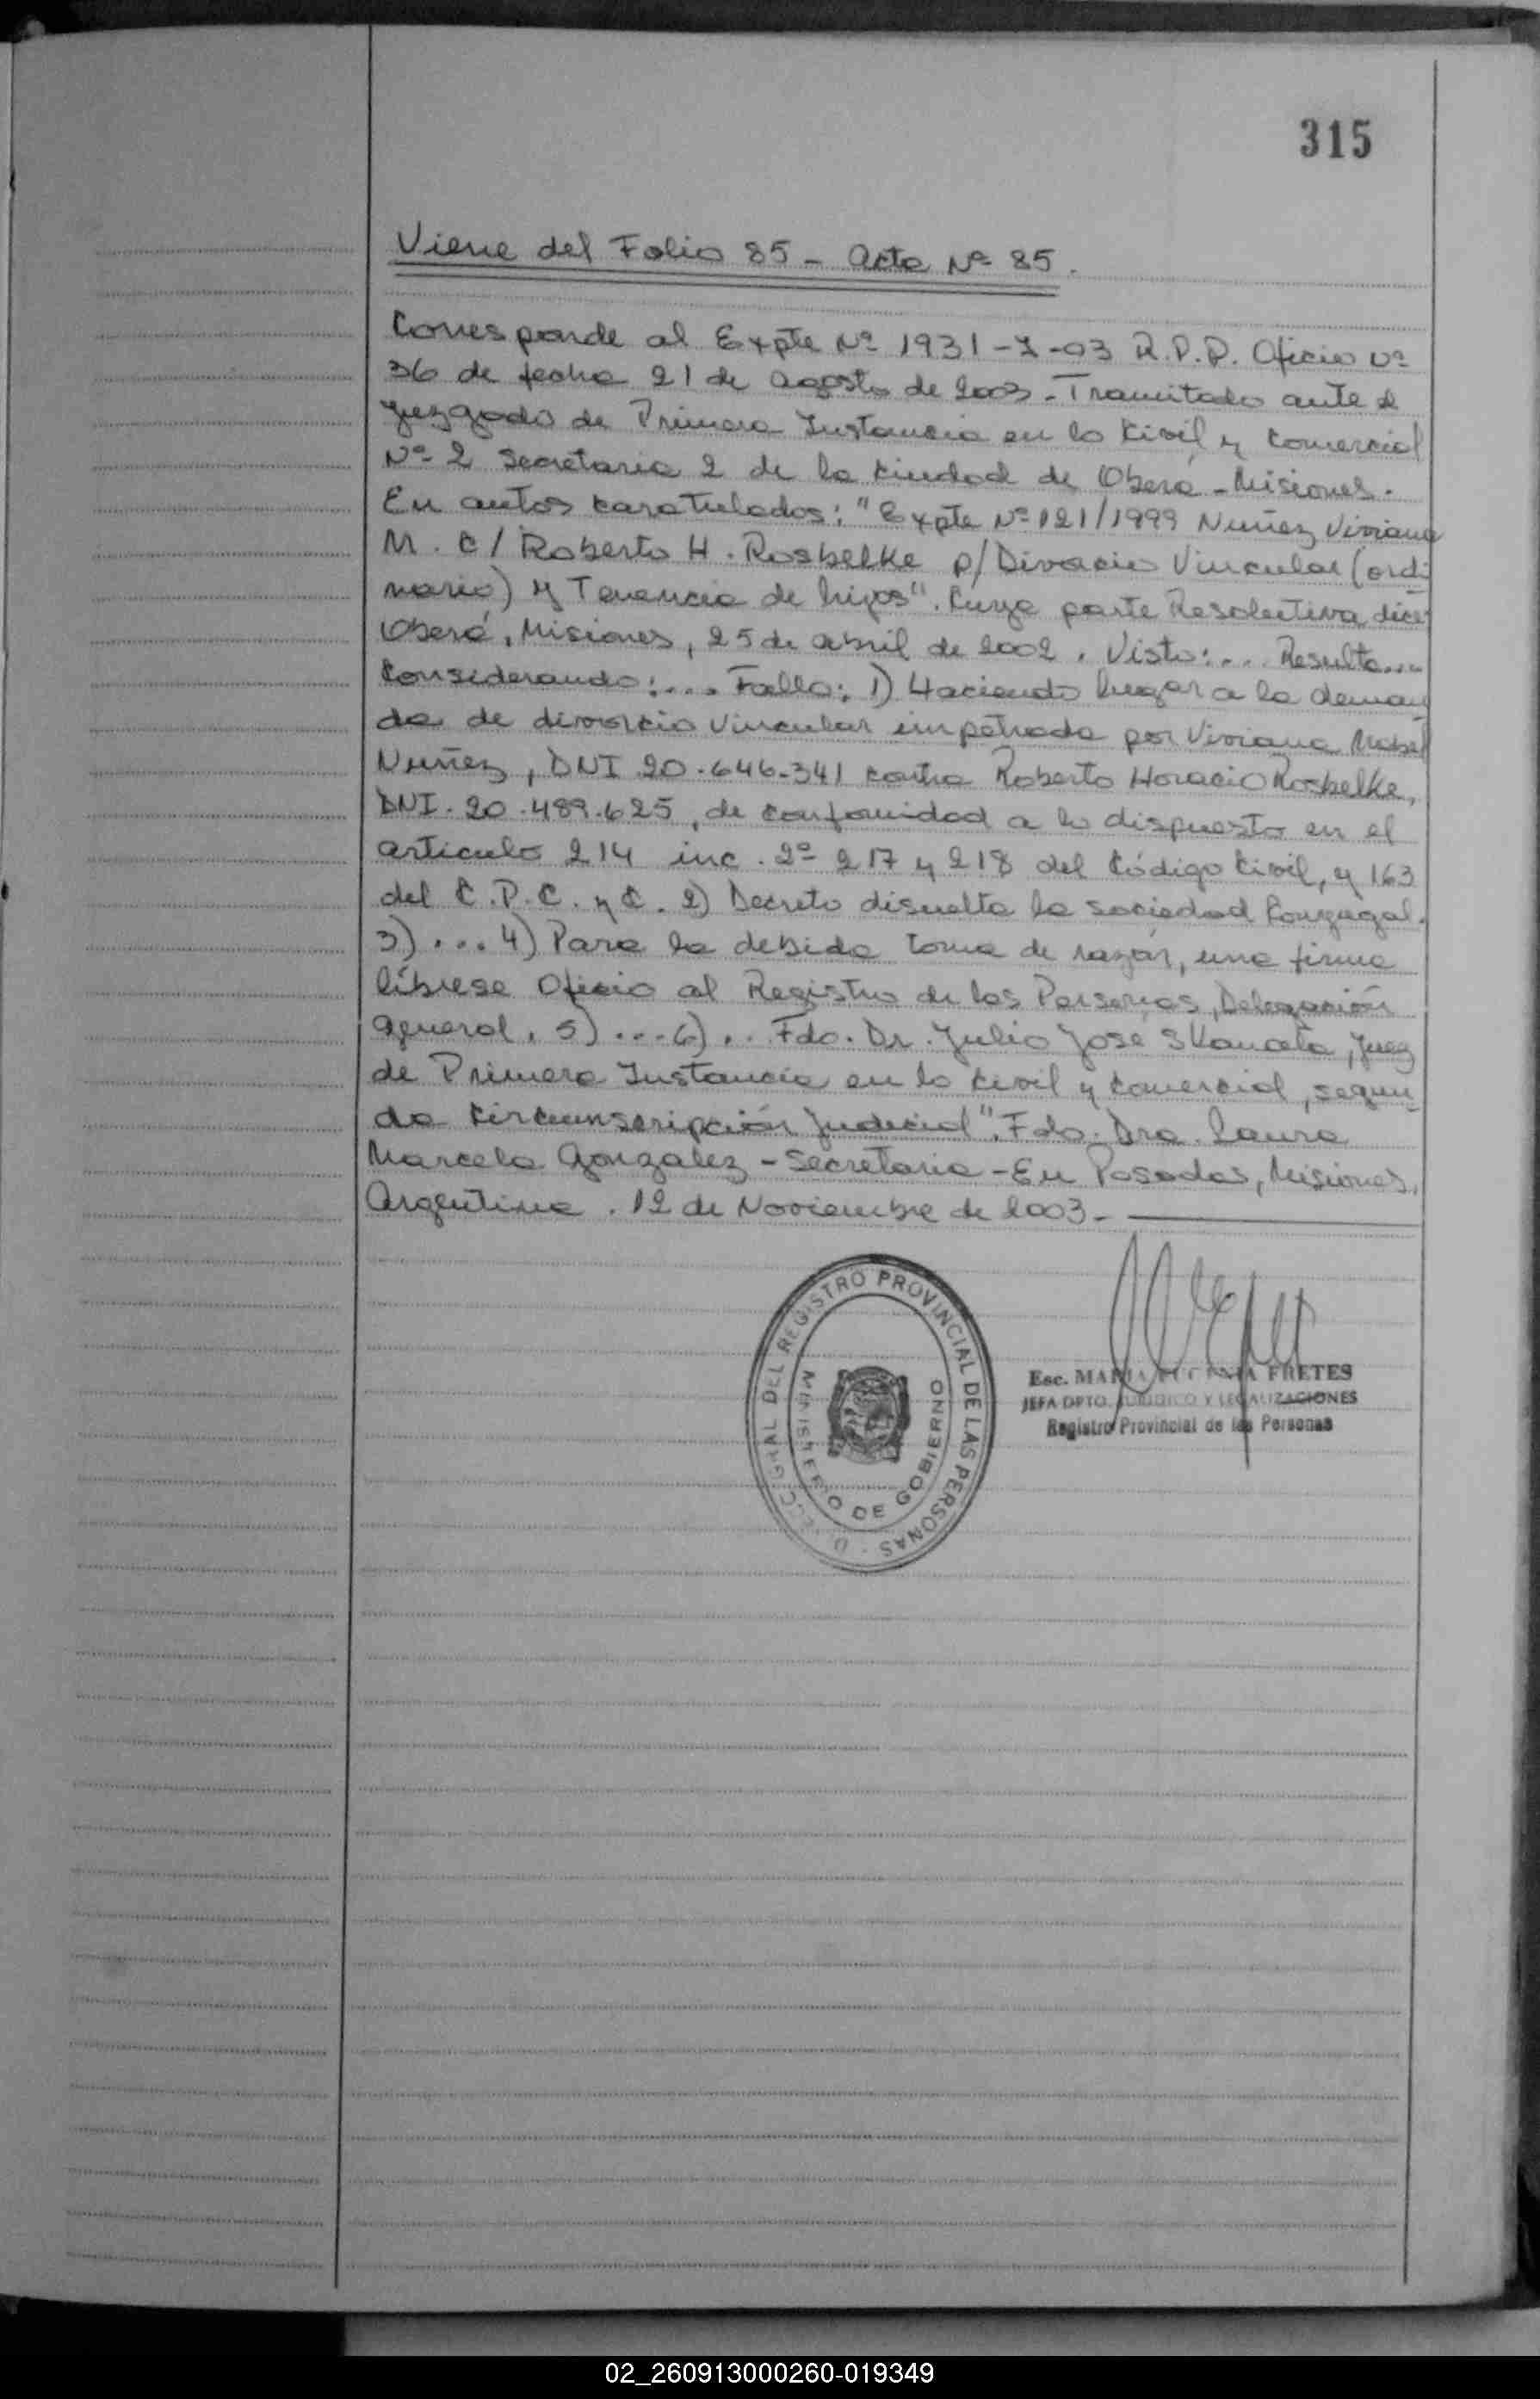 315
Viene del Folio 85 - Acta Nº 85.
Corresponde al Expte Nº 1931-I-03 R.P.P. Oficio Nº
36 de fecha 21 de agosto de 2003 - Tramitado ante el
Juzgado de Primera Instancia en lo Civil y Comercial
Nº 2 Secretaria 2 de la Ciudad de Oberá - Misiones.
En autos caratulados: "Expte Nº 121/1999 Nuñez Viviana
M. c/ Roberto H. Rosbelke p/ Divorcio Vincular (ordi
nario) y Tenencia de hijos". Cuya parte Resolutiva dice:
Oberá, Misiones, 25 de abril de 2002. Visto:... Resulta...
Considerando:.... Fallo: 1) Haciendo lugar a la deman
da de divorcio Vincular impetrada por Viviana Mabel
Nuñez, DNI 20.646.341 contra Roberto Horacio Rosbelke,
DNI. 20.489.625, de conformidad a lo dispuesto en el
articulo 214 inc. 2º 217 y 218 del Código Civil, y 163
del C.P.C. y C. 2) Decreto disuelta la sociedad Conyugal.
3)... 4) Para la debida toma de razón, una firme
líbrese Oficio al Registro de las Personas, Delegación
General. 5)...6).. Fdo. Dr. Julio Jose Skanata, Juez
de Primera Instancia en lo Civil y Comercial, segun_
da Circunscripción Judicial". Fdo. Dra. Laura
Marcela Gonzalez - Secretaria - En Posadas, Misiones,
Argentina. 12 de Noviembre de 2003.-
DIRECC. GRAL DEL REGISTRO PROVINCIAL DE LAS PERSONAS
MINISTERIO DE GOBIERNO
Esc. MARIA EUGENIA FRETES
JEFA DPTO. JURIDICO Y LEGALIZACIONES
Registro Provincial de las Personas
02_260913000260-019349